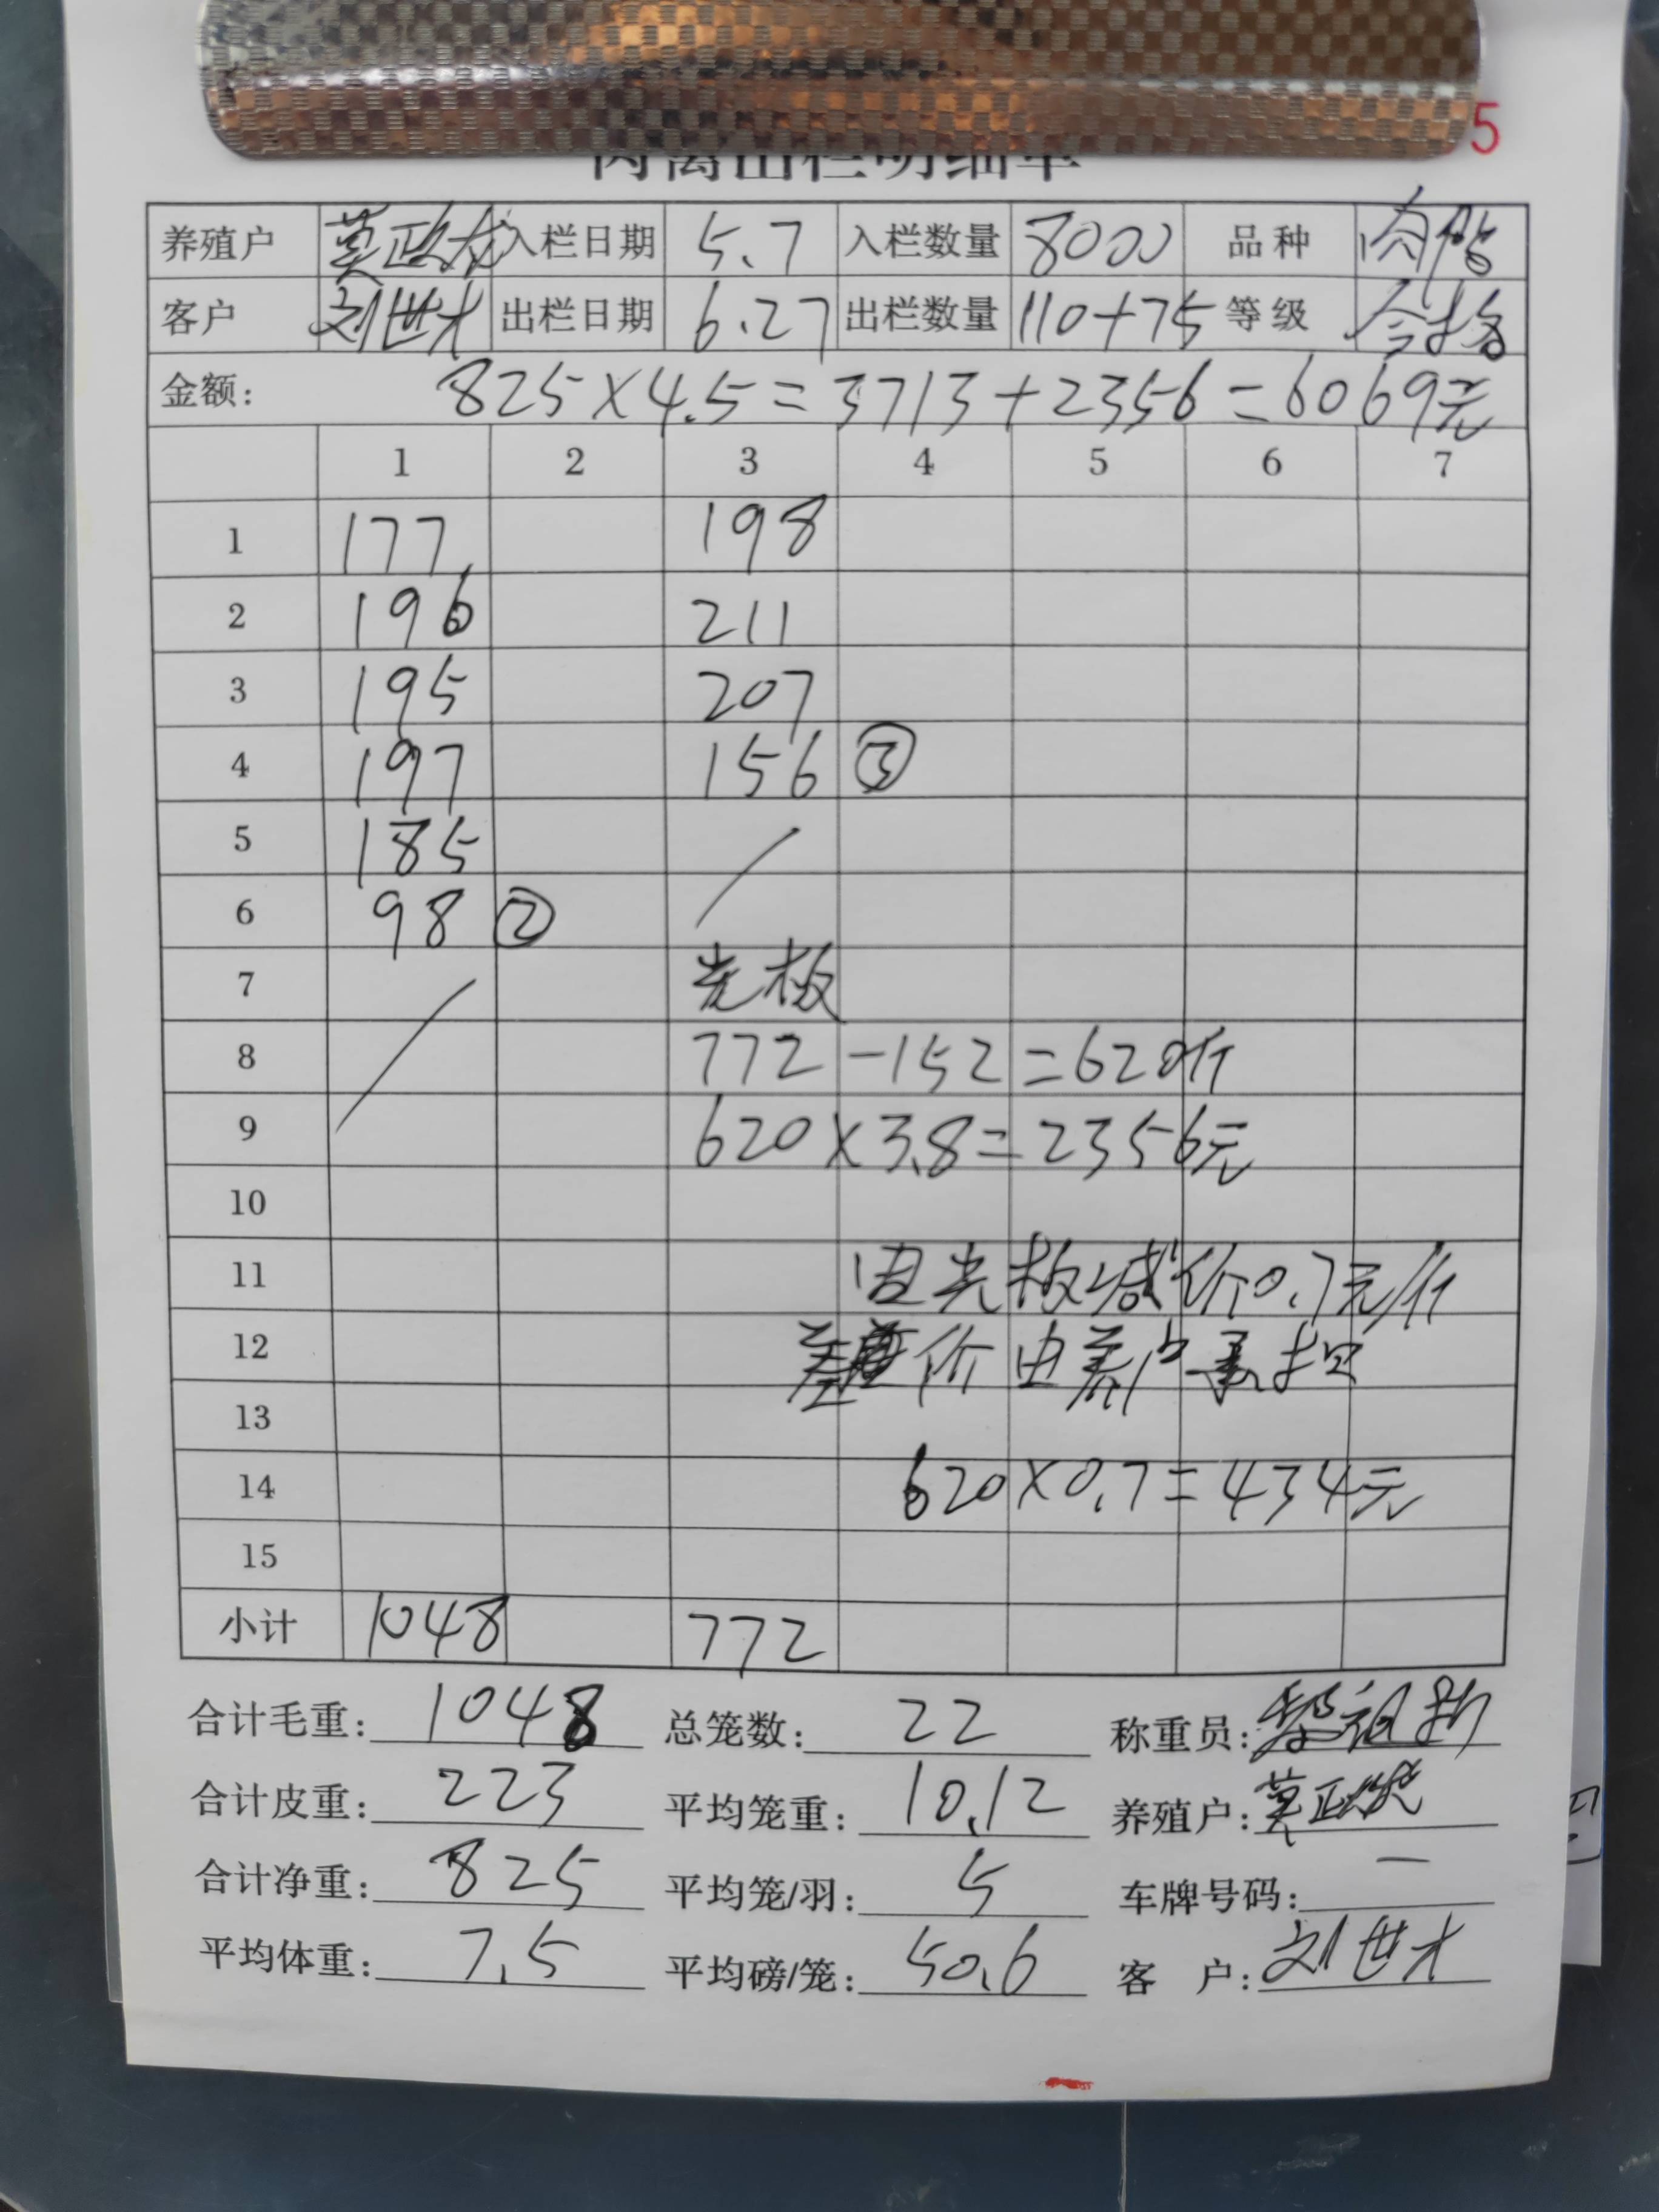 5
肉禽出栏明细单
养殖户 莫正龙 入栏日期 5.7 入栏数量 8000 品种 肉鸭
客户 刘世才 出栏日期 6.27 出栏数量 110+75 等级 合格
金额: 825×4.5=3713+2356=6069元
1 2 3 4 5 6 7
1 177 198
2 196 211
3 195 207
4 197 156 ③
5 185
6 98 ②
7 光板
8 772-152=620斤
9 620×3.8=2356元
10
11 因光板减价0.7元/斤
12 差价由养户承担
13
14 620×0.7=434元
15
小计 1048 772
合计毛重: 1048 总笼数: 22 称重员:
合计皮重: 223 平均笼重: 10.12 养殖户: 莫正龙
合计净重: 825 平均笼/羽: 5 车牌号码: 一
平均体重: 7.5 平均磅/笼: 50.6 客 户: 刘世才